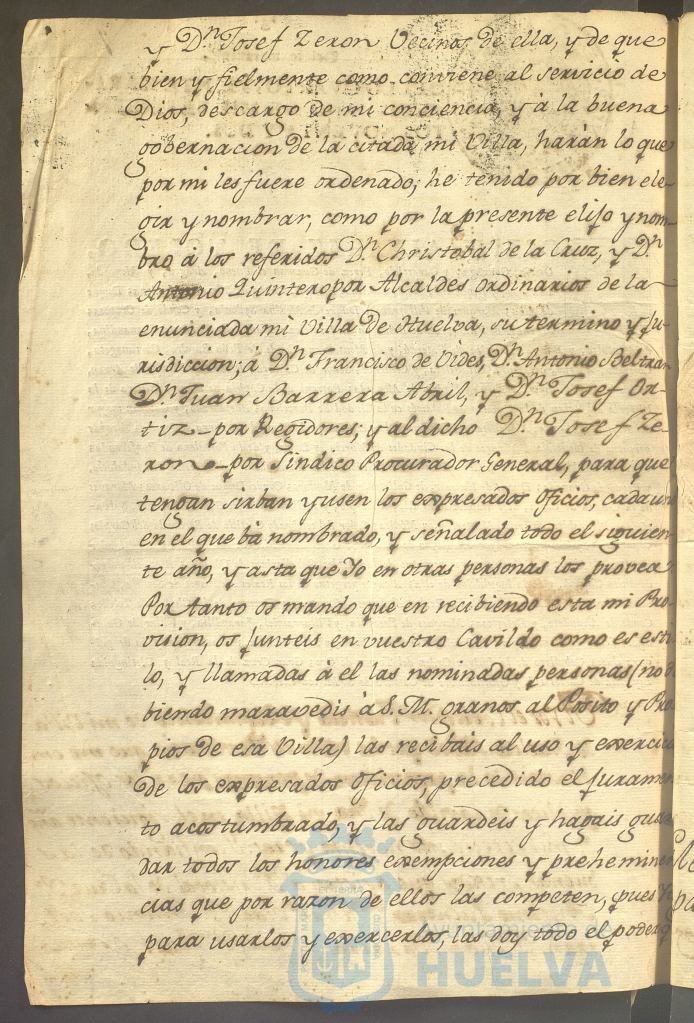 y D.ⁿ Josef Zeron Vecinos de ella, y de que
bien y fielmente como conviene al servicio de
Dios, descargo de mi conciencia, y à la buena
gobernacion de la citada mi Villa, harán lo que
por mi les fuere ordenado; he tenido por bien ele-
gir y nombrar, como por la presente elijo y nom-
bro à los referidos D.ⁿ Christobal de la Cruz, y D.ⁿ
Antonio Quintero por Alcaldes ordinarios de la
enunciada mi Villa de Huelva, su termino y Ju-
risdiccion; à D.ⁿ Francisco de Vides, D.ⁿ Antonio Beltran
D.ⁿ Juan Barrera Abril, y D.ⁿ Josef Or-
tiz por Regidores; y al dicho D.ⁿ Josef Ze-
ron por Sindico Procurador General, para que
tengan sirban y usen los expresados oficios, cada uno
en el que bà nombrado, y señalado todo el siguien-
te año, y asta que Yo en otras personas los provea
Por tanto os mando que en recibiendo esta mi Pro
vision, os Junteis en vuestro Cavildo como es esti
lo, y llamadas à el las nominadas personas (no
biendo maravedis à S. M. granos al Posito y Pro
pios de esa Villa) las recibais al uso y exercicio
de los expresados oficios, precedido el Juramen
to acostumbrado, y las guardeis y hagais guar
dar todos los honores exempciones y preheminen
cias que por razon de ellos las competen, pues Yo
para usarlos y exercerlos, las doy todo el poder q
HUELVA